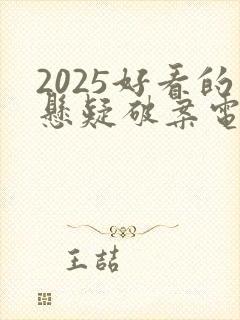 2025好看的
悬疑破案電
王喆